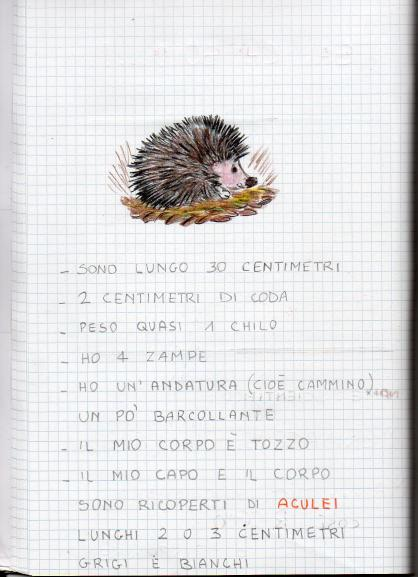 - SONO LUNGO 30 CENTIMETRI
- 2 CENTIMETRI DI CODA
- PESO QUASI 1 CHILO
- HO 4 ZAMPE
- HO UN'ANDATURA (CIOÈ CAMMINO)
UN PO' BARCOLLANTE
- IL MIO CORPO È TOZZO
- IL MIO CAPO E IL CORPO
SONO RICOPERTI DI ACULEI
LUNGHI 2 O 3 CENTIMETRI
GRIGI È BIANCHI